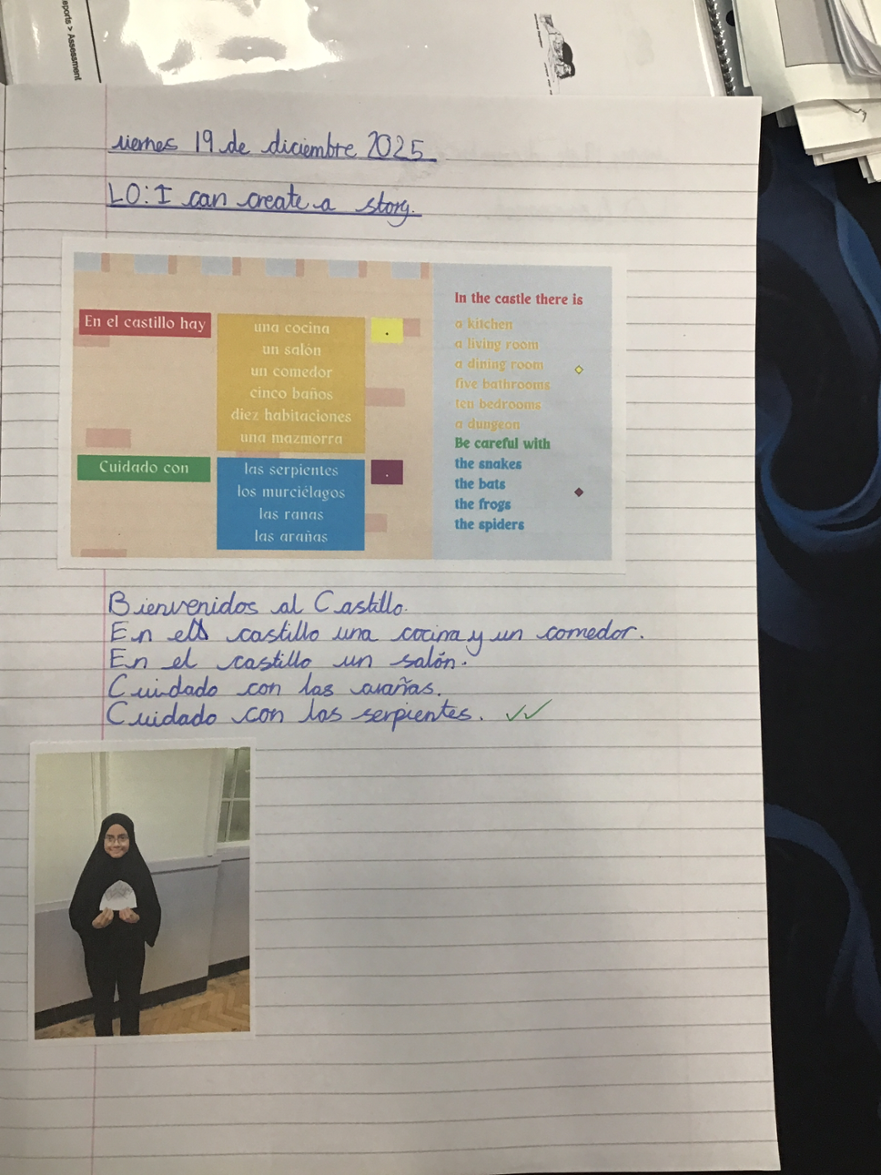 eports > Assessment
viernes 19 de diciembre 2025
LO: I can create a story.
En el castillo hay
una cocina
un salón
un comedor
cinco baños
diez habitaciones
una mazmorra
.
Cuidado con
las serpientes
los murciélagos
las ranas
las arañas
.
In the castle there is
a kitchen
a living room
a dining room
five bathrooms
ten bedrooms
a dungeon
Be careful with
the snakes
the bats
the frogs
the spiders
Bienvenidos al Castillo.
En el castillo una cocina y un comedor.
En el castillo un salón.
Cuidado con las arañas.
Cuidado con las serpientes.